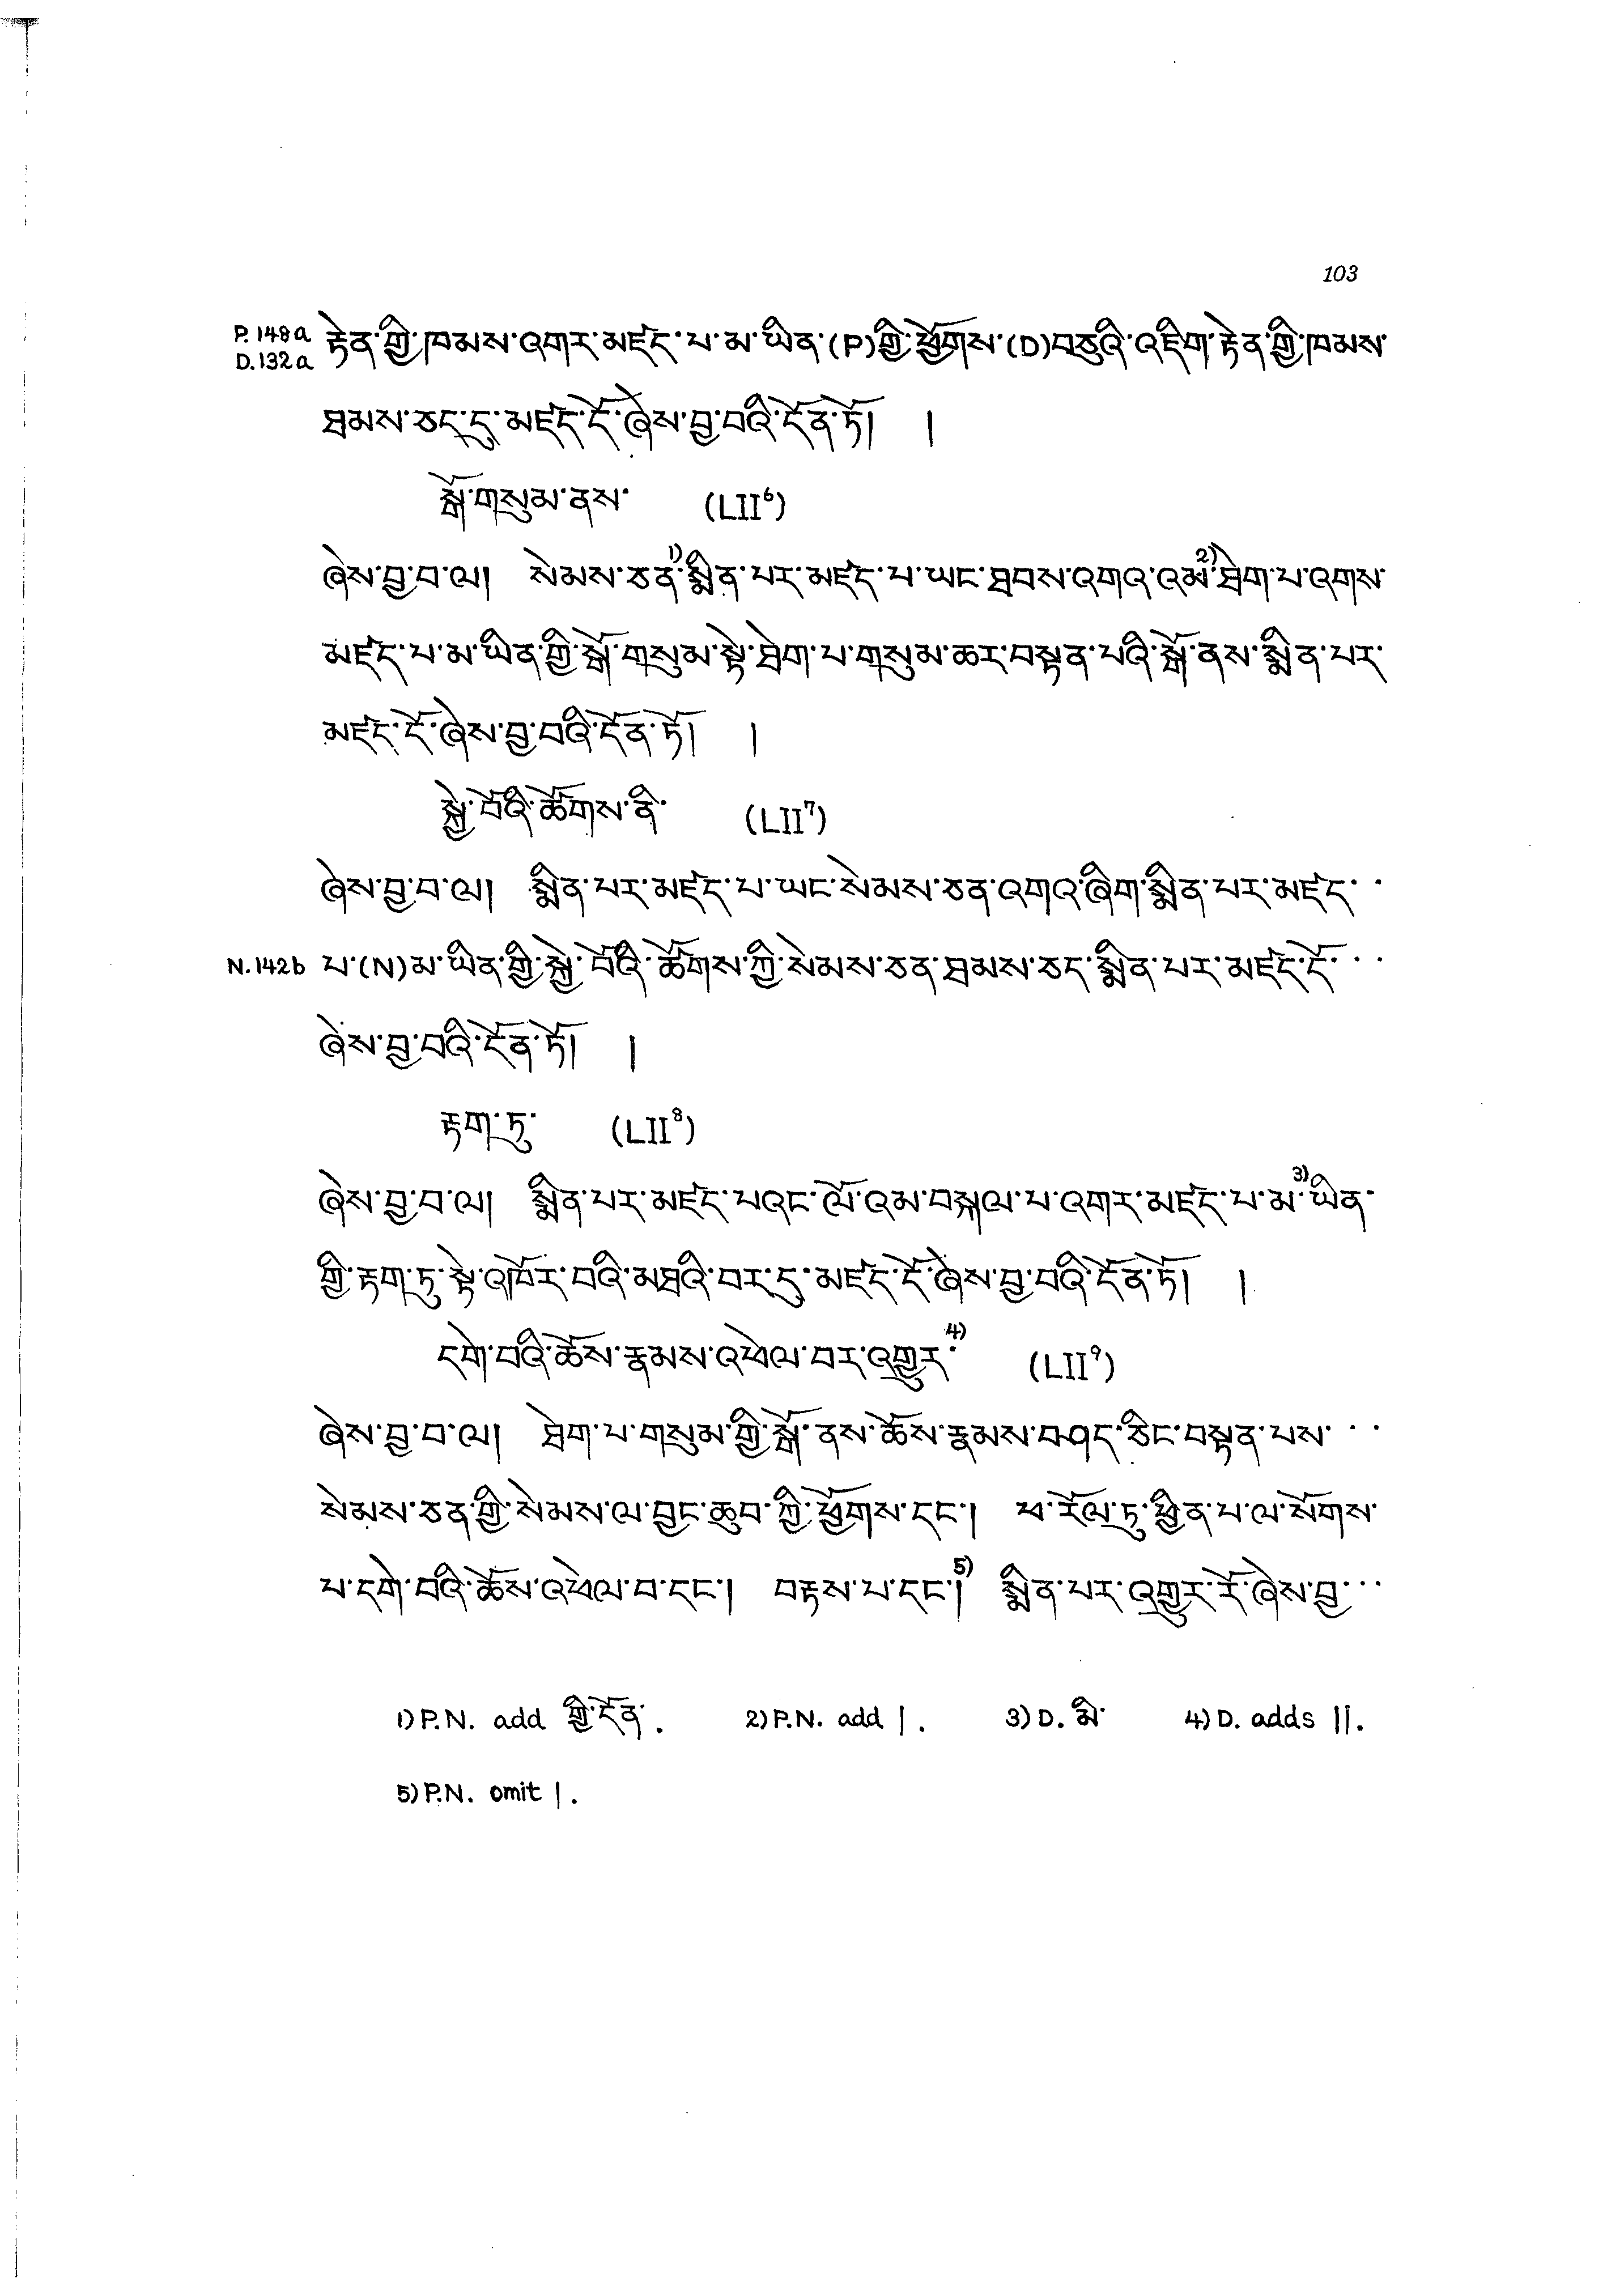 103
P.148a
D.132a
རྟེན་གྱི་ཁམས་འགར་མཛད་པ་མ་ཡིན་(P)གྱི་ཕྱོགས་(D)བཅུའི་འཇིག་རྟེན་གྱི་ཁམས་
ཐམས་ཅད་དུ་མཛད་དོ་ཞེས་བྱ་བའི་དོན་ཏོ། །
སྒོ་གསུམ་ནས་ (LII⁶)
ཞེས་བྱ་བ་ལ། སེམས་ཅན་¹⁾སྨིན་པར་མཛད་པ་ཡང་ཐབས་འགའ་འམ་²⁾ཐེག་པ་འགས་
མཛད་པ་མ་ཡིན་གྱི་སྒོ་གསུམ་སྟེ་ཐེག་པ་གསུམ་ཆར་བསྟན་པའི་སྒོ་ནས་སྨིན་པར་
མཛད་དོ་ཞེས་བྱ་བའི་དོན་ཏོ། །
སྐྱེ་བོའི་ཚོགས་ནི་ (LII⁷)
ཞེས་བྱ་བ་ལ། སྨིན་པར་མཛད་པ་ཡང་སེམས་ཅན་འགའ་ཞིག་སྨིན་པར་མཛད་··
N.142b པ་(N)མ་ཡིན་གྱི་སྐྱེ་བོའི་ཚོགས་ཀྱི་སེམས་ཅན་ཐམས་ཅད་སྨིན་པར་མཛད་དོ་···
ཞེས་བྱ་བའི་དོན་ཏོ། །
རྟག་ཏུ་ (LII⁸)
ཞེས་བྱ་བ་ལ། སྨིན་པར་མཛད་པའང་ལོ་འམ་བསྐལ་པ་འགར་མཛད་པ་མ་³⁾ཡིན་
གྱི་རྟག་ཏུ་སྟེ་འཁོར་བའི་མཐའི་བར་དུ་མཛད་དོ་ཞེས་བྱ་བའི་དོན་ཏོ། །
དགེ་བའི་ཆོས་རྣམས་འཕེལ་བར་འགྱུར་⁴⁾ (LII⁹)
ཞེས་བྱ་བ་ལ། ཐེག་པ་གསུམ་གྱི་སྒོ་ནས་ཆོས་རྣམས་བཤད་ཅིང་བསྟན་པས་···
སེམས་ཅན་གྱི་སེམས་ལ་བྱང་ཆུབ་ཀྱི་ཕྱོགས་དང་། ཕ་རོལ་ཏུ་ཕྱིན་པ་ལ་སོགས་
པ་དགེ་བའི་ཆོས་འཕེལ་བ་དང་། བརྟས་པ་དང་།⁵⁾ སྨིན་པར་འགྱུར་རོ་ཞེས་བྱ་···
1) P.N. add གྱི་དོན་. 2) P.N. add །. 3) D. མི་ 4) D. adds ༎.
5) P.N. omit །.